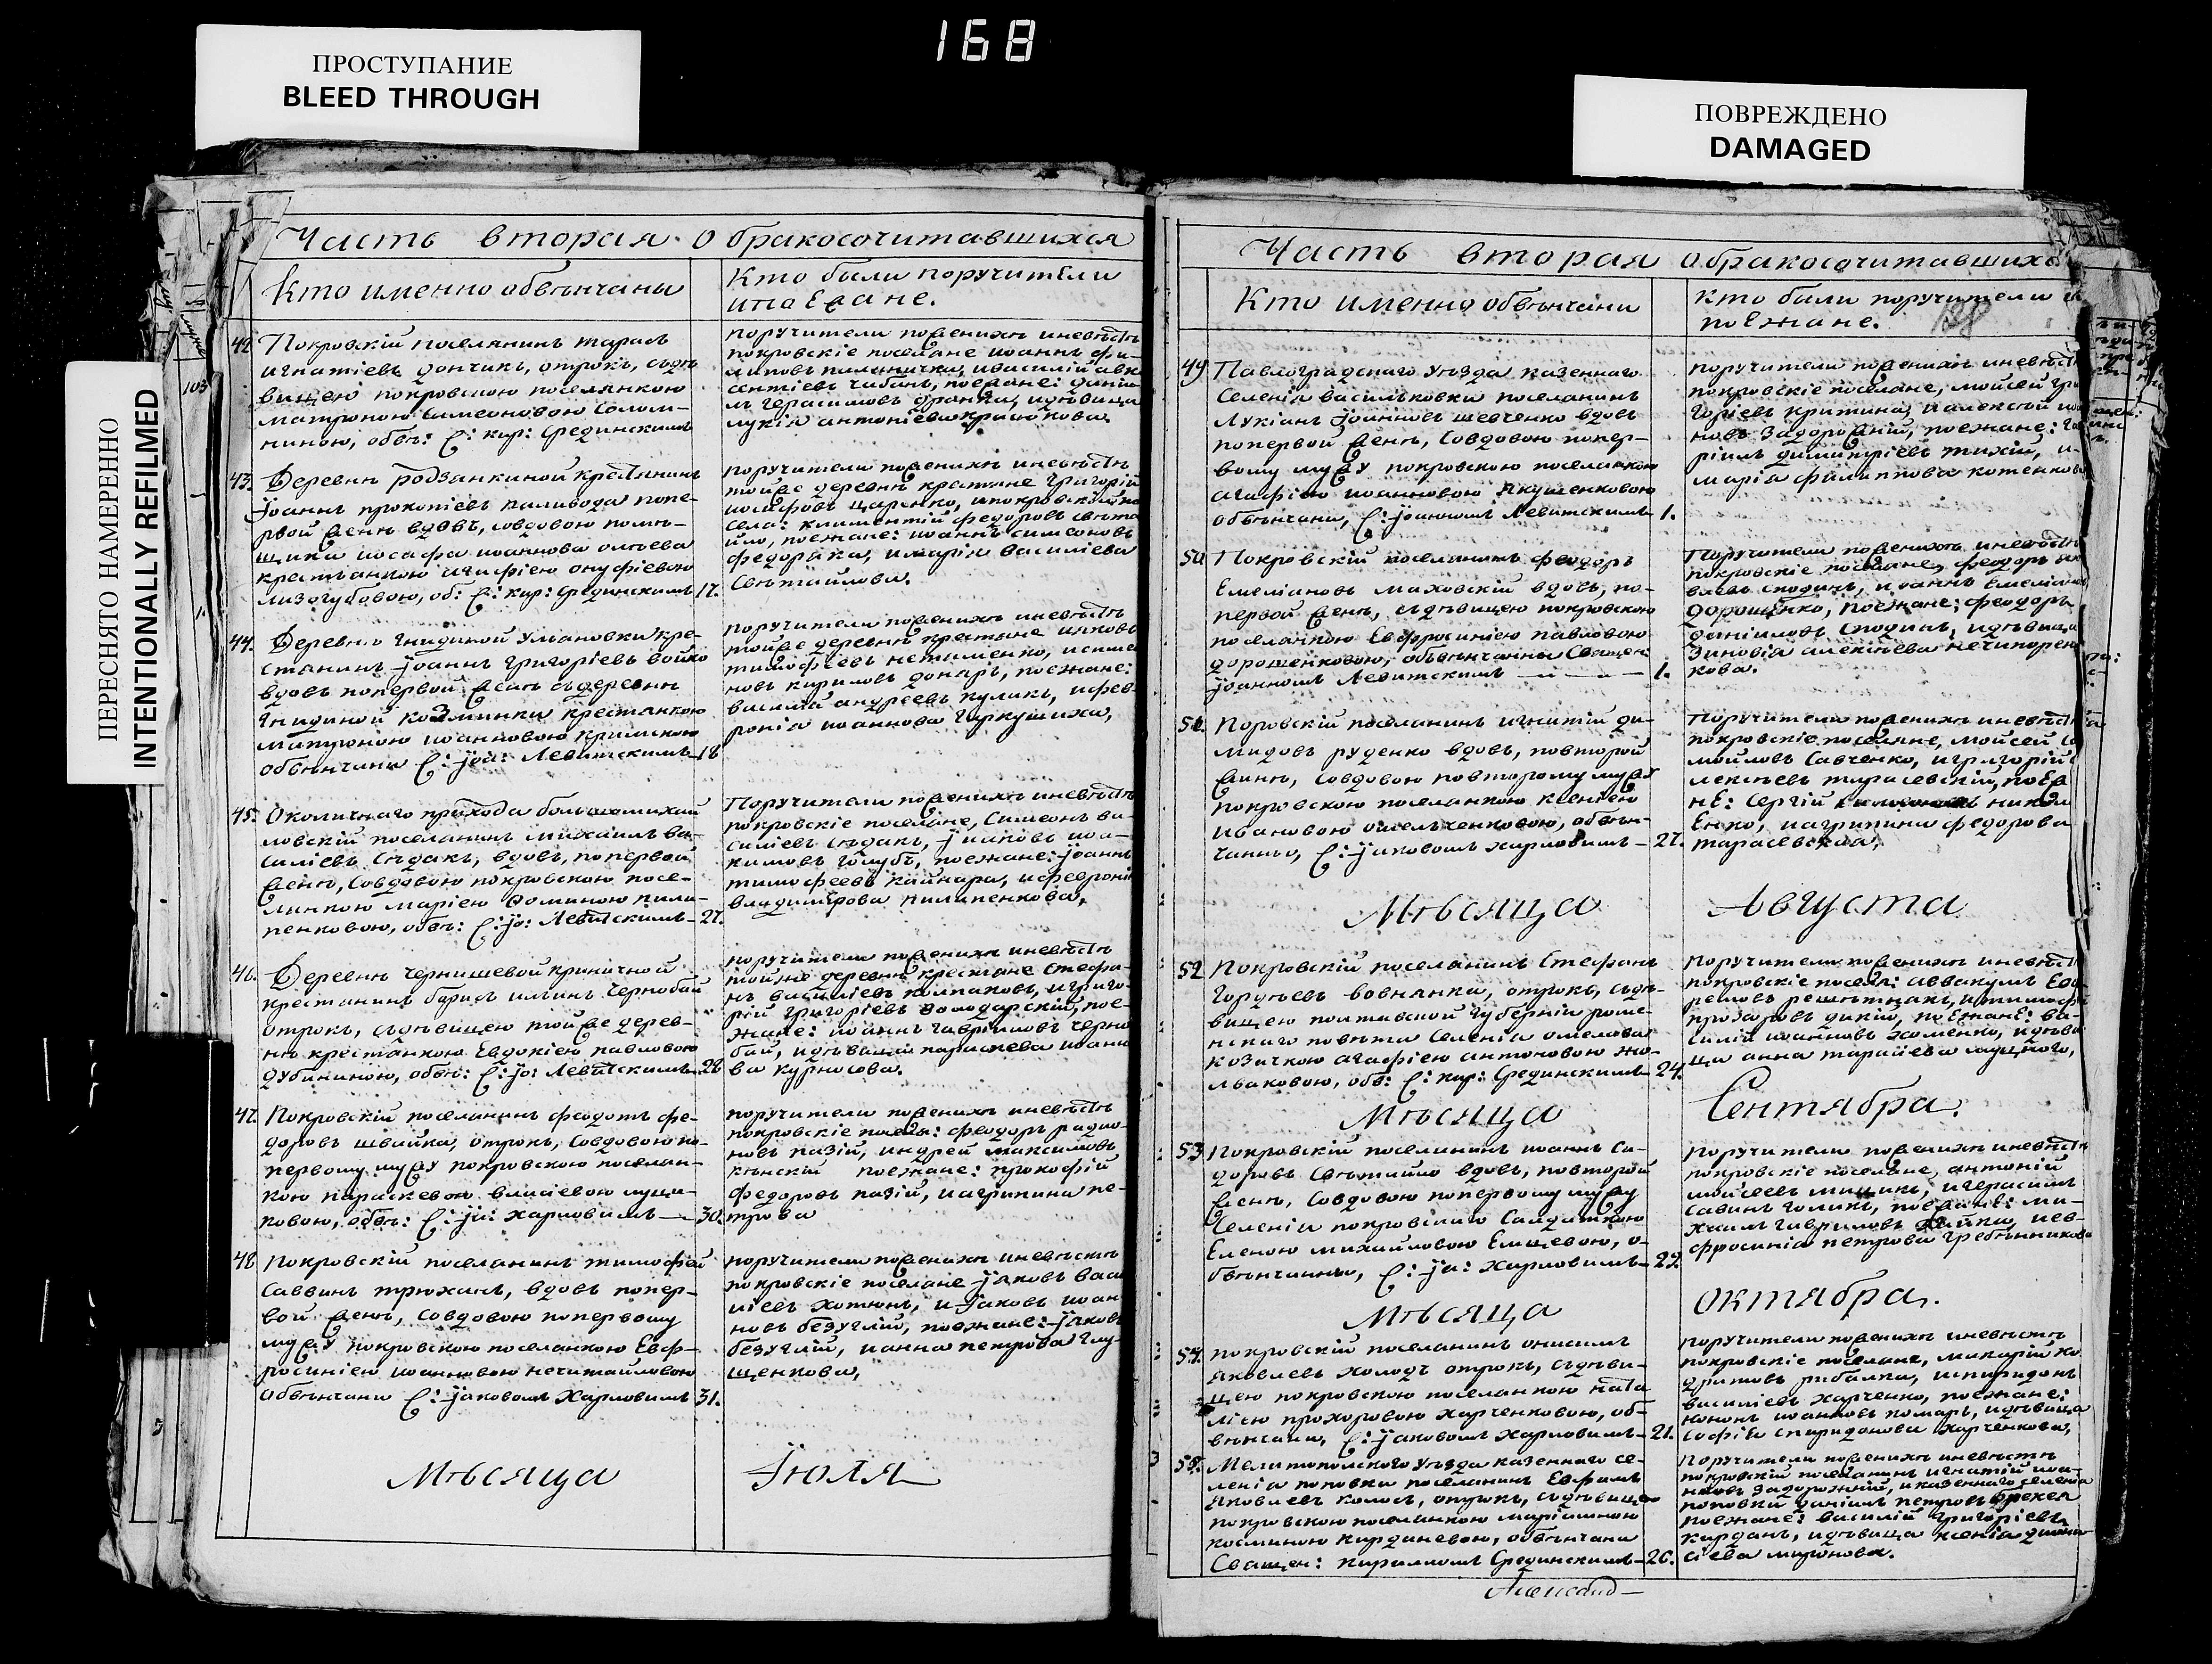 168
ПРОСТУПАНИЕ
BLEED THROUGH
ПОВРЕЖДЕНО
DAMAGED
ПЕРЕСНЯТО НАМЕРЕННО
INTENTIONALLY REFILMED
103
Часть вторая о бракосочитавшихся
Кто именно обвѣнчаны
Кто были поручители
и поезжане.
42 Покровскій поселянинъ тарасъ
игнатіевъ дончикъ, отрокъ, съдѣ-
вицею покровскою поселянкою
матроною симеоновою соломи-
ниною, обвѣ: С: кир: Срединскимъ
поручители по женихѣ и невѣстѣ
покровскіе поселяне иоаннъ фи-
липовъ
чабанъ, поезжане: даніи-
лъ герасимовъ и дѣвица
лукія антоніева
43. Деревни родзянкиной крестянинъ
Іоаннъ прокопіевъ паливода попе-
рвой женѣ вдовъ, совдовою помѣ-
щика иосафа иоаннова
крестьянкою агафіею онуфріевою
лизогубовою, об: С: кир: Срединскимъ 17.
поручители по женихѣ и невѣстѣ
тойже деревни крестяне григорій
иосифовъ царенко, и покровскій
села: климентій федоровъ свѣта-
йло, поезжане: иоаннъ симеоновъ
федоряка, и марія василіева
Свѣтайлова.
44. Деревни Гнидиной ульяновки кре-
стянинъ Іоаннъ григоріевъ бойко
вдовъ попервой женѣ съ деревни
Гнидиной козминки крестянкою
матроною иоанновою
обвѣнчаны С: Іоа: Левитскимъ 18
поручители по женихѣ и невѣстѣ
тойже деревни крестяне
тимофеевъ нетименко,
новъ кириловъ поезжане:
василій андреевъ куликъ, и фев-
ронія иоаннова Гаркушиха,
45. Околичнаго прихода большемихай
ловскій поселянинъ михаилъ ва-
силіевъ Сѣдакъ, вдовъ, попервой
женѣ, совдовою покровскою посе-
лянкою маріею фоминою пили-
пенковою, обвѣ: С: Іо: Левитскимъ 27.
Поручители по женихѣ и невѣстѣ
покровскіе поселяне, Симеонъ ва-
силіевъ Сѣдакъ, Іякимъ иоа-
кимовъ голубъ, поезжане: Іоаннъ
тимофеевъ кайнара, и февронія
владимірова пилипенкова,
46. Деревни чернишевой криничной
крестянинъ борисъ ильинъ Чернобай
отрокъ, съдѣвицею тойже дерев-
ни крестянкою Евдокіею павловою
дубининою, обвѣ: С: Іо: Левитскимъ 28
поручители по женихѣ и невѣстѣ
тойже деревни крестяне Стефа-
нъ василіевъ колпаковъ, и григо-
рій григоріевъ володарскій, пое-
жане: иоаннъ гавріиловъ черно
бай, и дѣвица параскева иоанно
ва курносова.
47. Покровскій поселянинъ федотъ фе-
доровъ швайка, отрокъ, совдовою по-
первому мужу покровскою поселян-
кою параскевою власіевою луце-
ковою, обвѣ: С: Іа: Харловимъ 30.
поручители по женихѣ и невѣстѣ
покровскіе посел: феодоръ радио-
новъ пазій, андрей максимовъ
поезжане: прокофій
федоровъ пазій, и агрипина пе-
трова
48 покровскій поселянинъ тимофей
Саввинъ трюханъ, вдовъ попер-
вой женѣ, совдовою попервому
мужу покровскою поселянкою Евф-
росиніею иоанновою нечитайловою
обвѣнчаны С: Іаковомъ Харловимъ 31.
поручители по женихѣ и невѣстѣ
покровскіе поселяне Іаковъ васи
ліевъ хотюнъ, и Іаковъ иоан-
новъ безуглій, поезжане: Іаковъ
безуглій, и анна петрова Глу-
щенкова,
Мѣсяца Іюля
Часть вторая о бракосочитавшихся
Кто именно обвѣнчаны
Кто были поручители и
поезжане.
49 Павлоградскаго уѣзда казеннаго
Селенія васильковки поселянинъ
Лукіанъ Іоанновъ шевченко вдовъ
попервой женѣ, совдовою попер-
вому мужу покровскою поселянкою
агафіею иоанновою Якушенковою
обвѣнчаны, С: Іоанномъ Левитскимъ 1.
поручители по женихѣ и невѣстѣ
покровскіе поселяне, мойсей гри
горіевъ критина, и алексѣй иоа
новъ Задорожній, поезжане:
ріилъ димитріевъ тихій, и
марія филиппова котенкова
50 Покровскій поселянинъ феодоръ
Емеліановъ маховскій вдовъ, по-
первой женѣ, съдѣвицею покровскою
поселянкою Евфросиніею павловою
дорошенковою, обвѣнчаны Священ:
Іоанномъ Левитскимъ 1.
Поручители по женихѣ и невѣстѣ
покровскіе поселяне, феодоръ
влевъ сподинъ, и иоаннъ Емеліановъ
дорошенко, поезжане: феодоръ
даніиловъ сподинъ, и дѣвица
Зиновія алексѣева нечипорен
кова.
51. Поровскій поселянинъ игнатій ди-
мидовъ руденко вдовъ, повторой
женѣ, совдовою повторому мужу
покровскою поселянкою ксеніею
ивановою омельченковою, обвѣн-
чаны, С: Іаковомъ Харловимъ 27.
Поручители по женихѣ и невѣстѣ
покровскіе поселяне, мойсей са
мойловъ Савченко, и григорій
лексѣевъ тарасевскій, поезжа
не: Сергій никол
Енко, и агрипина федорова
тарасевская,
Мѣсяца Августа
52 Покровскій поселянинъ Стефанъ
Гордѣевъ вовнянка, отрокъ, съдѣ-
вицею полтавской губерніи роме-
нскаго повѣта селенія
козачкою агафіею антоновою
льаковою, обв: С: кир: Срединскимъ 24.
поручители по женихѣ и невѣстѣ
покровскіе посел: аввакумъ Еф
ремовъ решетнякъ, и тимофей
прохоровъ дикій, поезжанЕ: ва-
силій иоанновъ хоменко, и дѣви
ца анна тарасіева
Мѣсяца Сентября.
53 Покровскій поселянинъ иоаннъ Си-
доровъ Свѣтайло вдовъ, повторой
женѣ, совдовою попервому мужу
Селенія покровскаго Салдаткою
Еленою михайловою Емцевою, о-
бвѣнчаны, С: Іа: Харловимъ 29.
поручители по женихѣ и невѣстѣ
покровскіе поселяне, антоній
мойсеевъ миникъ, и герасимъ
савинъ голикъ, поезжанЕ: ми-
хаилъ гавриловъ и ев-
фросинія петрова гребѣнникова
Мѣсяца октября.
54. покровскій поселянинъ онисимъ
Яковлевъ холодъ отрокъ, съдѣви-
цею покровскою поселянкою ната
ліею прохоровою харченковою, об-
вѣнчаны, С: Іаковомъ Харловимъ 21.
поручители по женихѣ и невѣстѣ
покровскіе поселяне, макарій ко
дратовъ рибалка, и спиридонъ
василіевъ Харченко, поезжане:
кононъ иоанновъ комаръ, и дѣвица
Софія спиридонова харченкова,
55. Мелитопольского уѣзда казеннаго се-
ленія поповки поселянинъ Евфимъ
Яковлевъ колосъ, отрокъ, съдѣвицею
покровскою поселянкою маріамною
косминою кардановою, обвѣнчаны
Священ: кириломъ Срединскимъ 26.
Поручители по женихѣ и невѣстѣ
покровскій поселянинъ игнатій иоа-
новъ Задорожній, и казеннаго селенія
поповки даніилъ петровъ брехея
поезжане: василій Григоріевъ
карданъ, и дѣвица ксенія діони
сіева миронова.